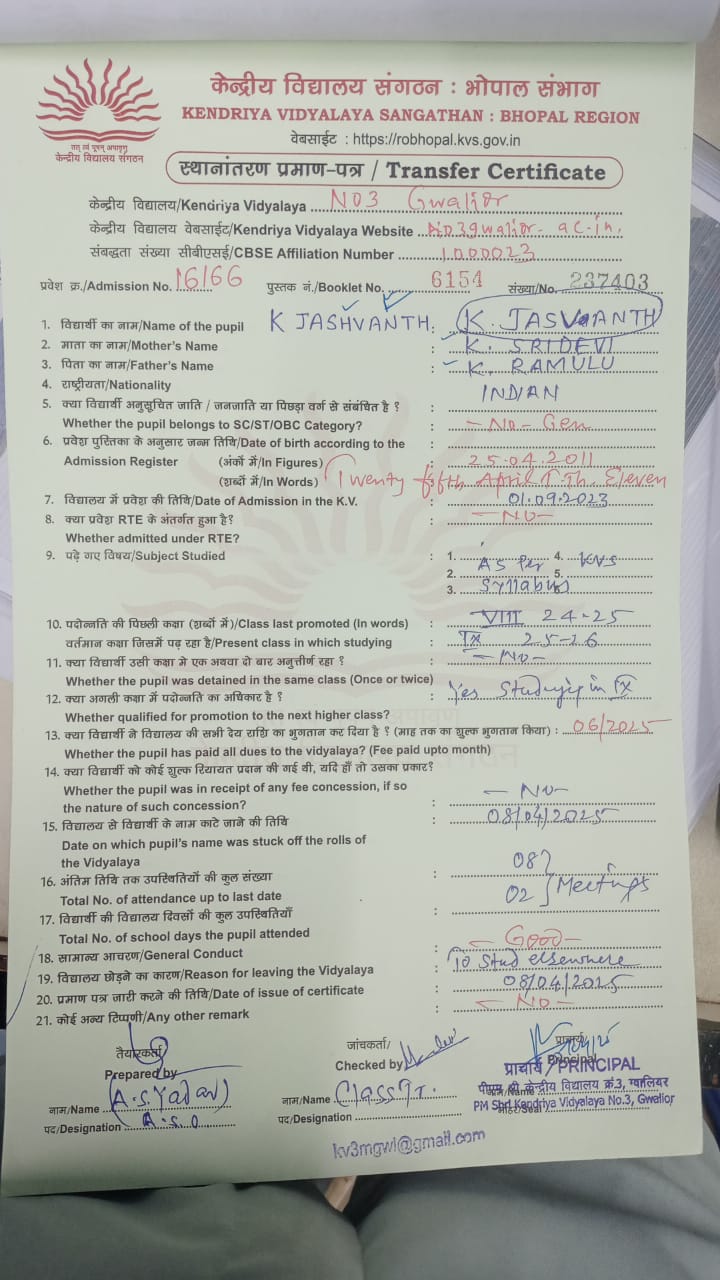 केन्द्रीय विद्यालय संगठन : भोपाल संभाग
KENDRIYA VIDYALAYA SANGATHAN : BHOPAL REGION
तत् त्वं पूषन् अपावृणु
केन्द्रीय विद्यालय संगठन
वेबसाईट : https://robhopal.kvs.gov.in
स्थानांतरण प्रमाण-पत्र / Transfer Certificate
केन्द्रीय विद्यालय/Kendriya Vidyalaya NO3 Gwalior
केन्द्रीय विद्यालय वेबसाईट/Kendriya Vidyalaya Website no3gwalior-ac-in.
संबद्धता संख्या सीबीएसई/CBSE Affiliation Number 1000023
प्रवेश क्र./Admission No. 16166 पुस्तक नं./Booklet No. 6154 संख्या/No. 237403
1. विद्यार्थी का नाम/Name of the pupil K JASHVANTH : K. JASVANTH
2. माता का नाम/Mother's Name : K. SRIDEVI
3. पिता का नाम/Father's Name : K. RAMULU
4. राष्ट्रीयता/Nationality : INDIAN
5. क्या विद्यार्थी अनुसूचित जाति / जनजाति या पिछड़ा वर्ग से संबंधित है ? :
Whether the pupil belongs to SC/ST/OBC Category? : - No - Gen
6. प्रवेश पुस्तिका के अनुसार जन्म तिथि/Date of birth according to the :
Admission Register (अंकों में/In Figures) : 25.04.2011
(शब्दों में/In Words) Twenty fifth April T. Th. Eleven
7. विद्यालय में प्रवेश की तिथि/Date of Admission in the K.V. : 01.09.2023
8. क्या प्रवेश RTE के अंतर्गत हुआ है? : - No -
Whether admitted under RTE?
9. पढ़े गए विषय/Subject Studied : 1. As Per 4. KVS
2. 5.
3. Syllabus
10. पदोन्नति की पिछली कक्षा (शब्दों में)/Class last promoted (In words) : VIII 24-25
वर्तमान कक्षा जिसमें पढ़ रहा है/Present class in which studying : IX 25-26
11. क्या विद्यार्थी उसी कक्षा मे एक अथवा दो बार अनुत्तीर्ण रहा ? : - No -
Whether the pupil was detained in the same class (Once or twice)
12. क्या अगली कक्षा में पदोन्नति का अधिकार है ? : Yes Studying in IX
Whether qualified for promotion to the next higher class?
13. क्या विद्यार्थी ने विद्यालय की सभी देय राशि का भुगतान कर दिया है ? (माह तक का शुल्क भुगतान किया) : 06/2025
Whether the pupil has paid all dues to the vidyalaya? (Fee paid upto month)
14. क्या विद्यार्थी को कोई शुल्क रियायत प्रदान की गई थी, यदि हाँ तो उसका प्रकार?
Whether the pupil was in receipt of any fee concession, if so - No -
the nature of such concession? :
15. विद्यालय से विद्यार्थी के नाम काटे जाने की तिथि : 08/04/2025
Date on which pupil's name was stuck off the rolls of
the Vidyalaya
16. अंतिम तिथि तक उपस्थितियों की कुल संख्या : 08
Total No. of attendance up to last date 02 Meetings
17. विद्यार्थी की विद्यालय दिवसों की कुल उपस्थितियाँ :
Total No. of school days the pupil attended
18. सामान्य आचरण/General Conduct : - Good -
19. विद्यालय छोड़ने का कारण/Reason for leaving the Vidyalaya : To Stud elsewhere
20. प्रमाण पत्र जारी करने की तिथि/Date of issue of certificate : 08/04/2025
21. कोई अन्य टिप्पणी/Any other remark : - NO -
तैयारकर्ता जांचकर्ता/ प्राचार्य
Prepared by Checked by Principal
प्राचार्य / PRINCIPAL
(A.S. Yadav)
नाम/Name नाम/Name Class Tr. पीएम श्री केन्द्रीय विद्यालय क्रं.3, ग्वालियर
पद/Designation A.S.O पद/Designation PM Shri Kendriya Vidyalaya No.3, Gwalior
kv3mgwl@gmail.com